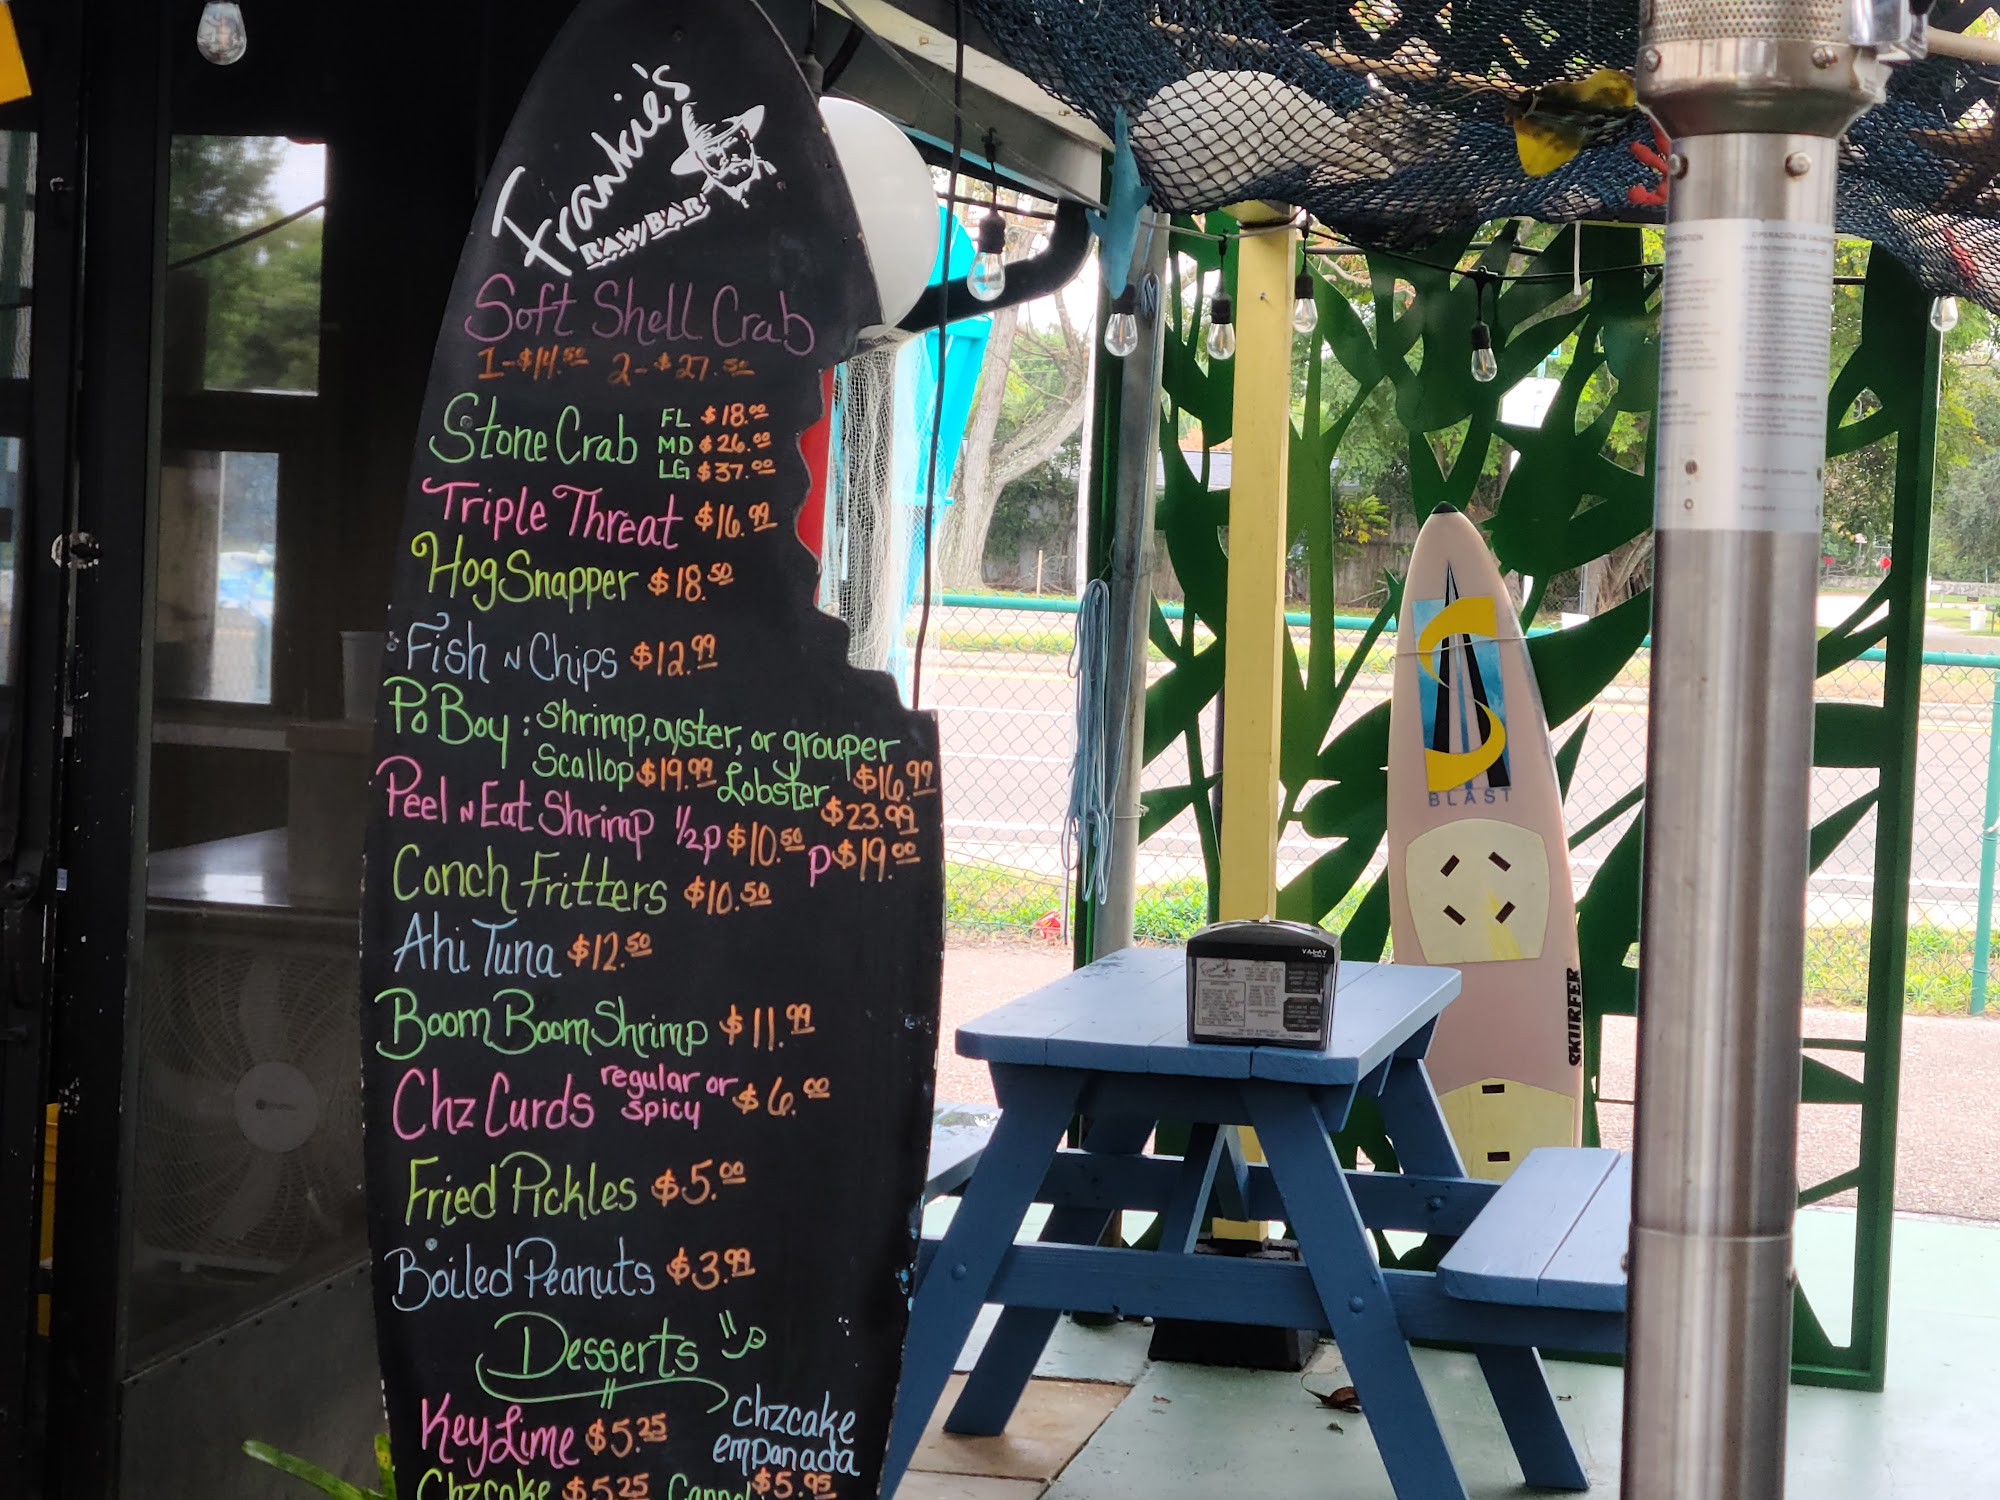 Frankie's
RAW BAR
Soft Shell Crab
1-$14.50 2-$27.50
Stone Crab FL $18.00
MD $26.00
LG $37.00
Triple Threat $16.99
Hog Snapper $18.50
Fish N Chips $12.99
Po Boy: shrimp, oyster, or grouper $16.99
Scallop $19.99 Lobster $23.99
Peel N Eat Shrimp 1/2p $10.50 p $19.00
Conch Fritters $10.50
Ahi Tuna $12.50
Boom Boom Shrimp $11.99
Chz Curds regular or spicy $6.00
Fried Pickles $5.00
Boiled Peanuts $3.99
Desserts
Key Lime $5.25
Chzcake empanada $5.95
Chzcake $5.25
BLAST
SKURFER
OPERACIÓN DE